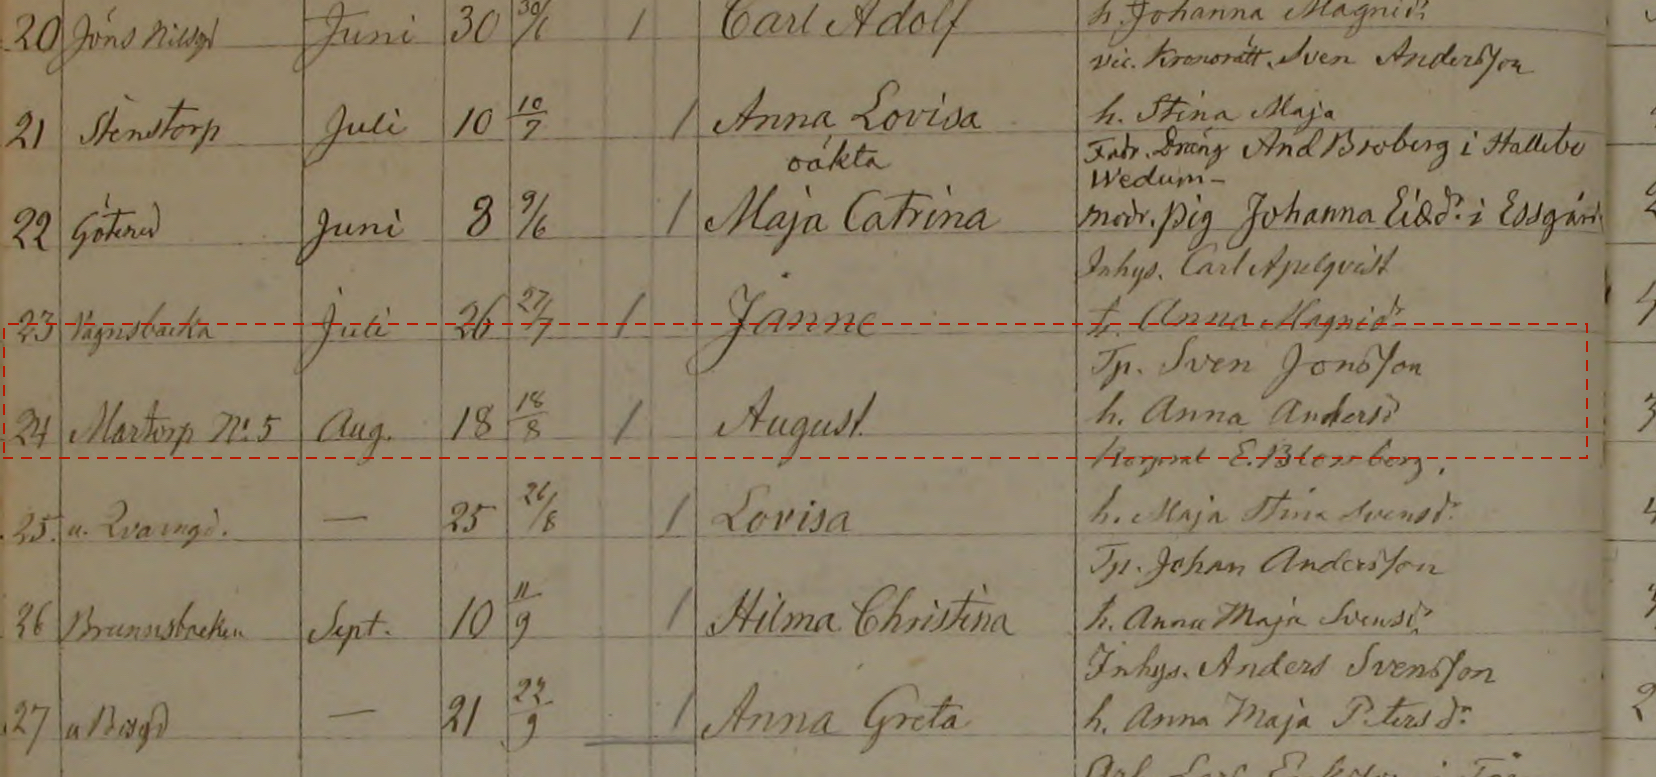 20 Jöns Nilsgd Juni 30 30/6 1 Carl Adolf h. Johanna Magnid:r
vic. Kronorätt. Sven Andersson
21 Stenstorp Juli 10 10/7 1 Anna Lovisa h. Stina Maja
oäkta Fadr. Dräng And Broberg i Hallebo
Wedum-
22 Götened Juni 8 9/6 1 Maja Catrina modr. pig Johanna i Essgärd
Inhys. Carl Apelqvist
23 Vagnsbacka Juli 26 27/7 1 Janne h. Anna Magnid:r
Tp. Sven Jonsson
24 Martorp No. 5 Aug. 18 18/8 1 August. h. Anna Andersd
Korporal E. Blomberg.
25. u. — 25 26/8 1 Lovisa h. Maja Stina Svensd:r
Tp. Johan Andersson
26 Brunnsbacken Sept. 10 11/9 1 Hilma Christina h. Anna Maja Svensd:r
Inhys. Anders Svensson
27 — 21 22/9 1 Anna Greta h. Anna Maja Petersd:r